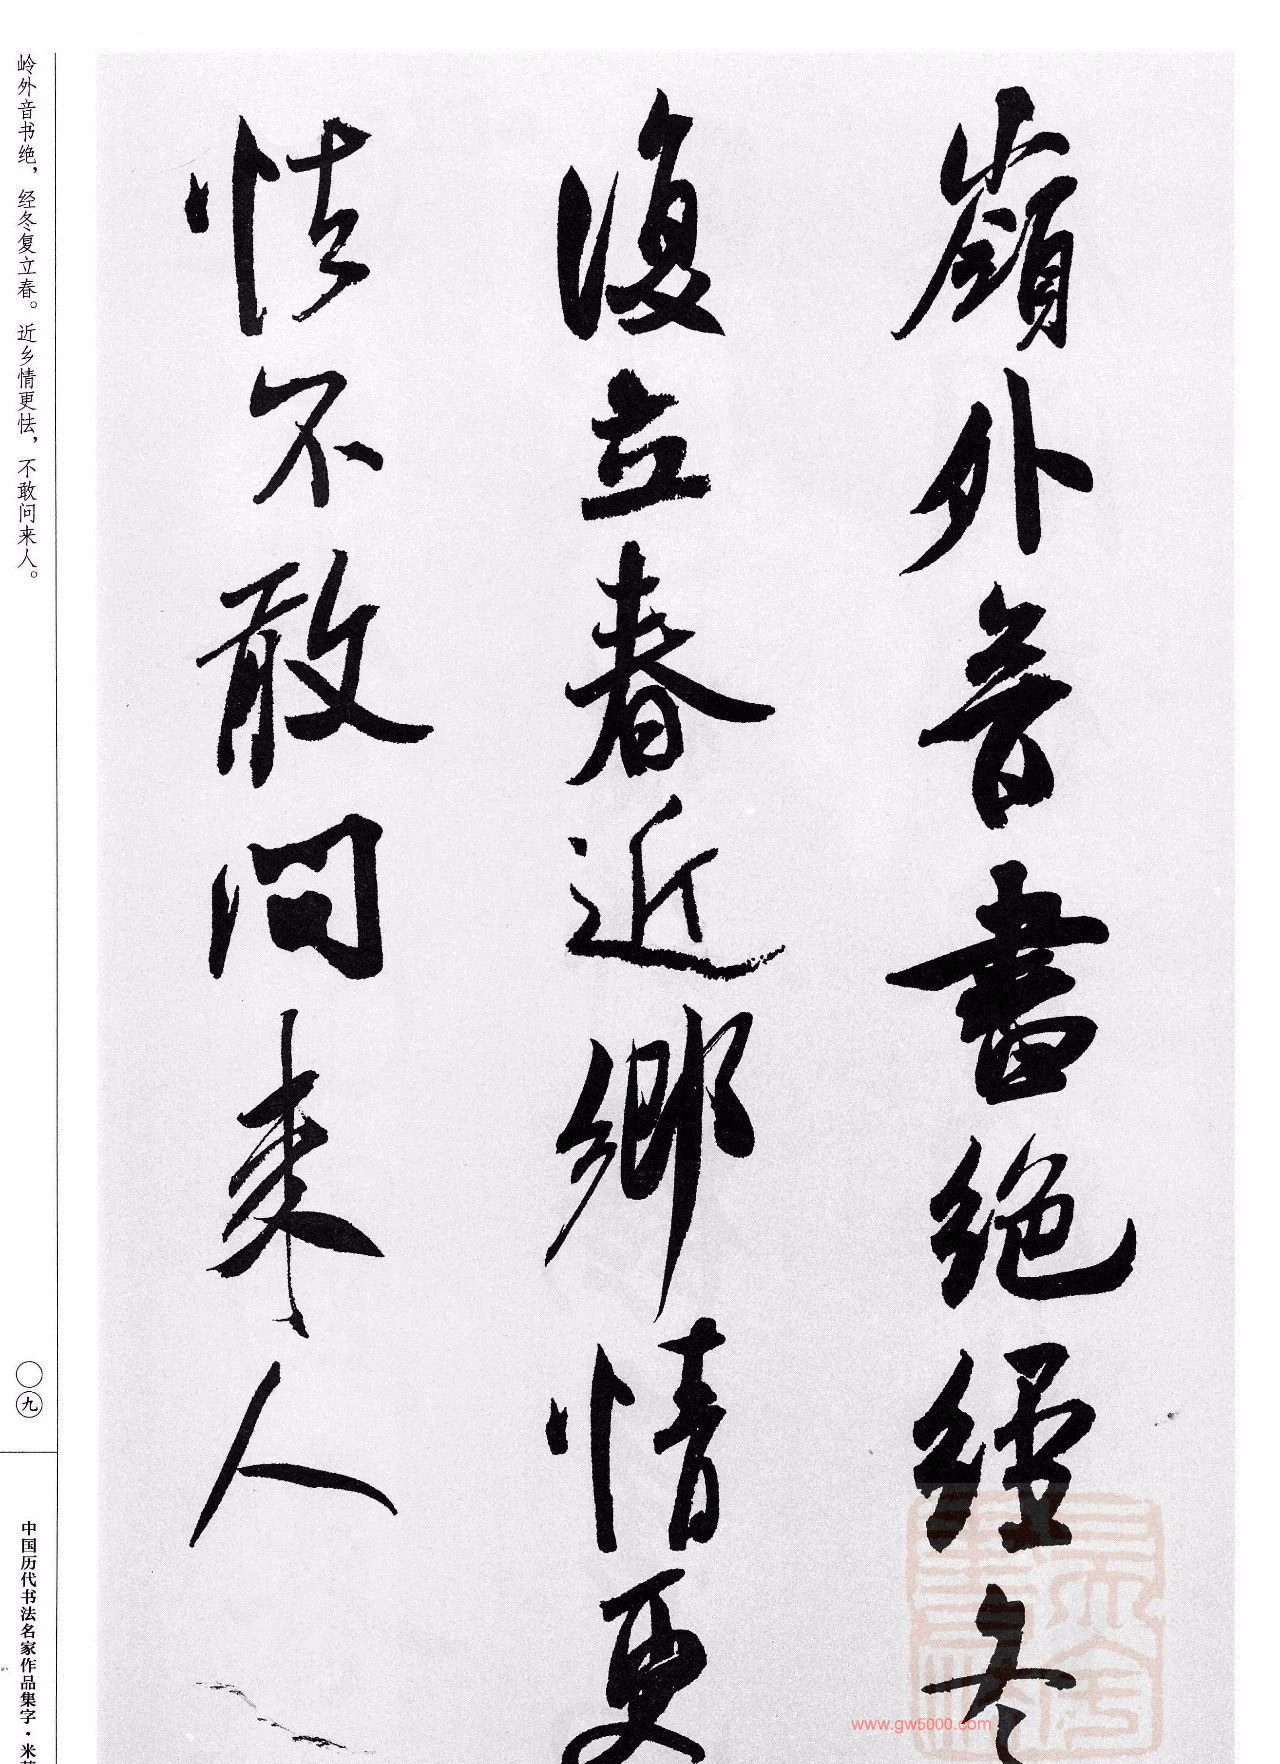 嶺外音書絶經冬
復立春近鄉情更
怯不敢问来人
岭外音书绝，经冬复立春。近乡情更怯，不敢问来人。
〇九
中国历代书法名家作品集字·米
www.gw5000.com